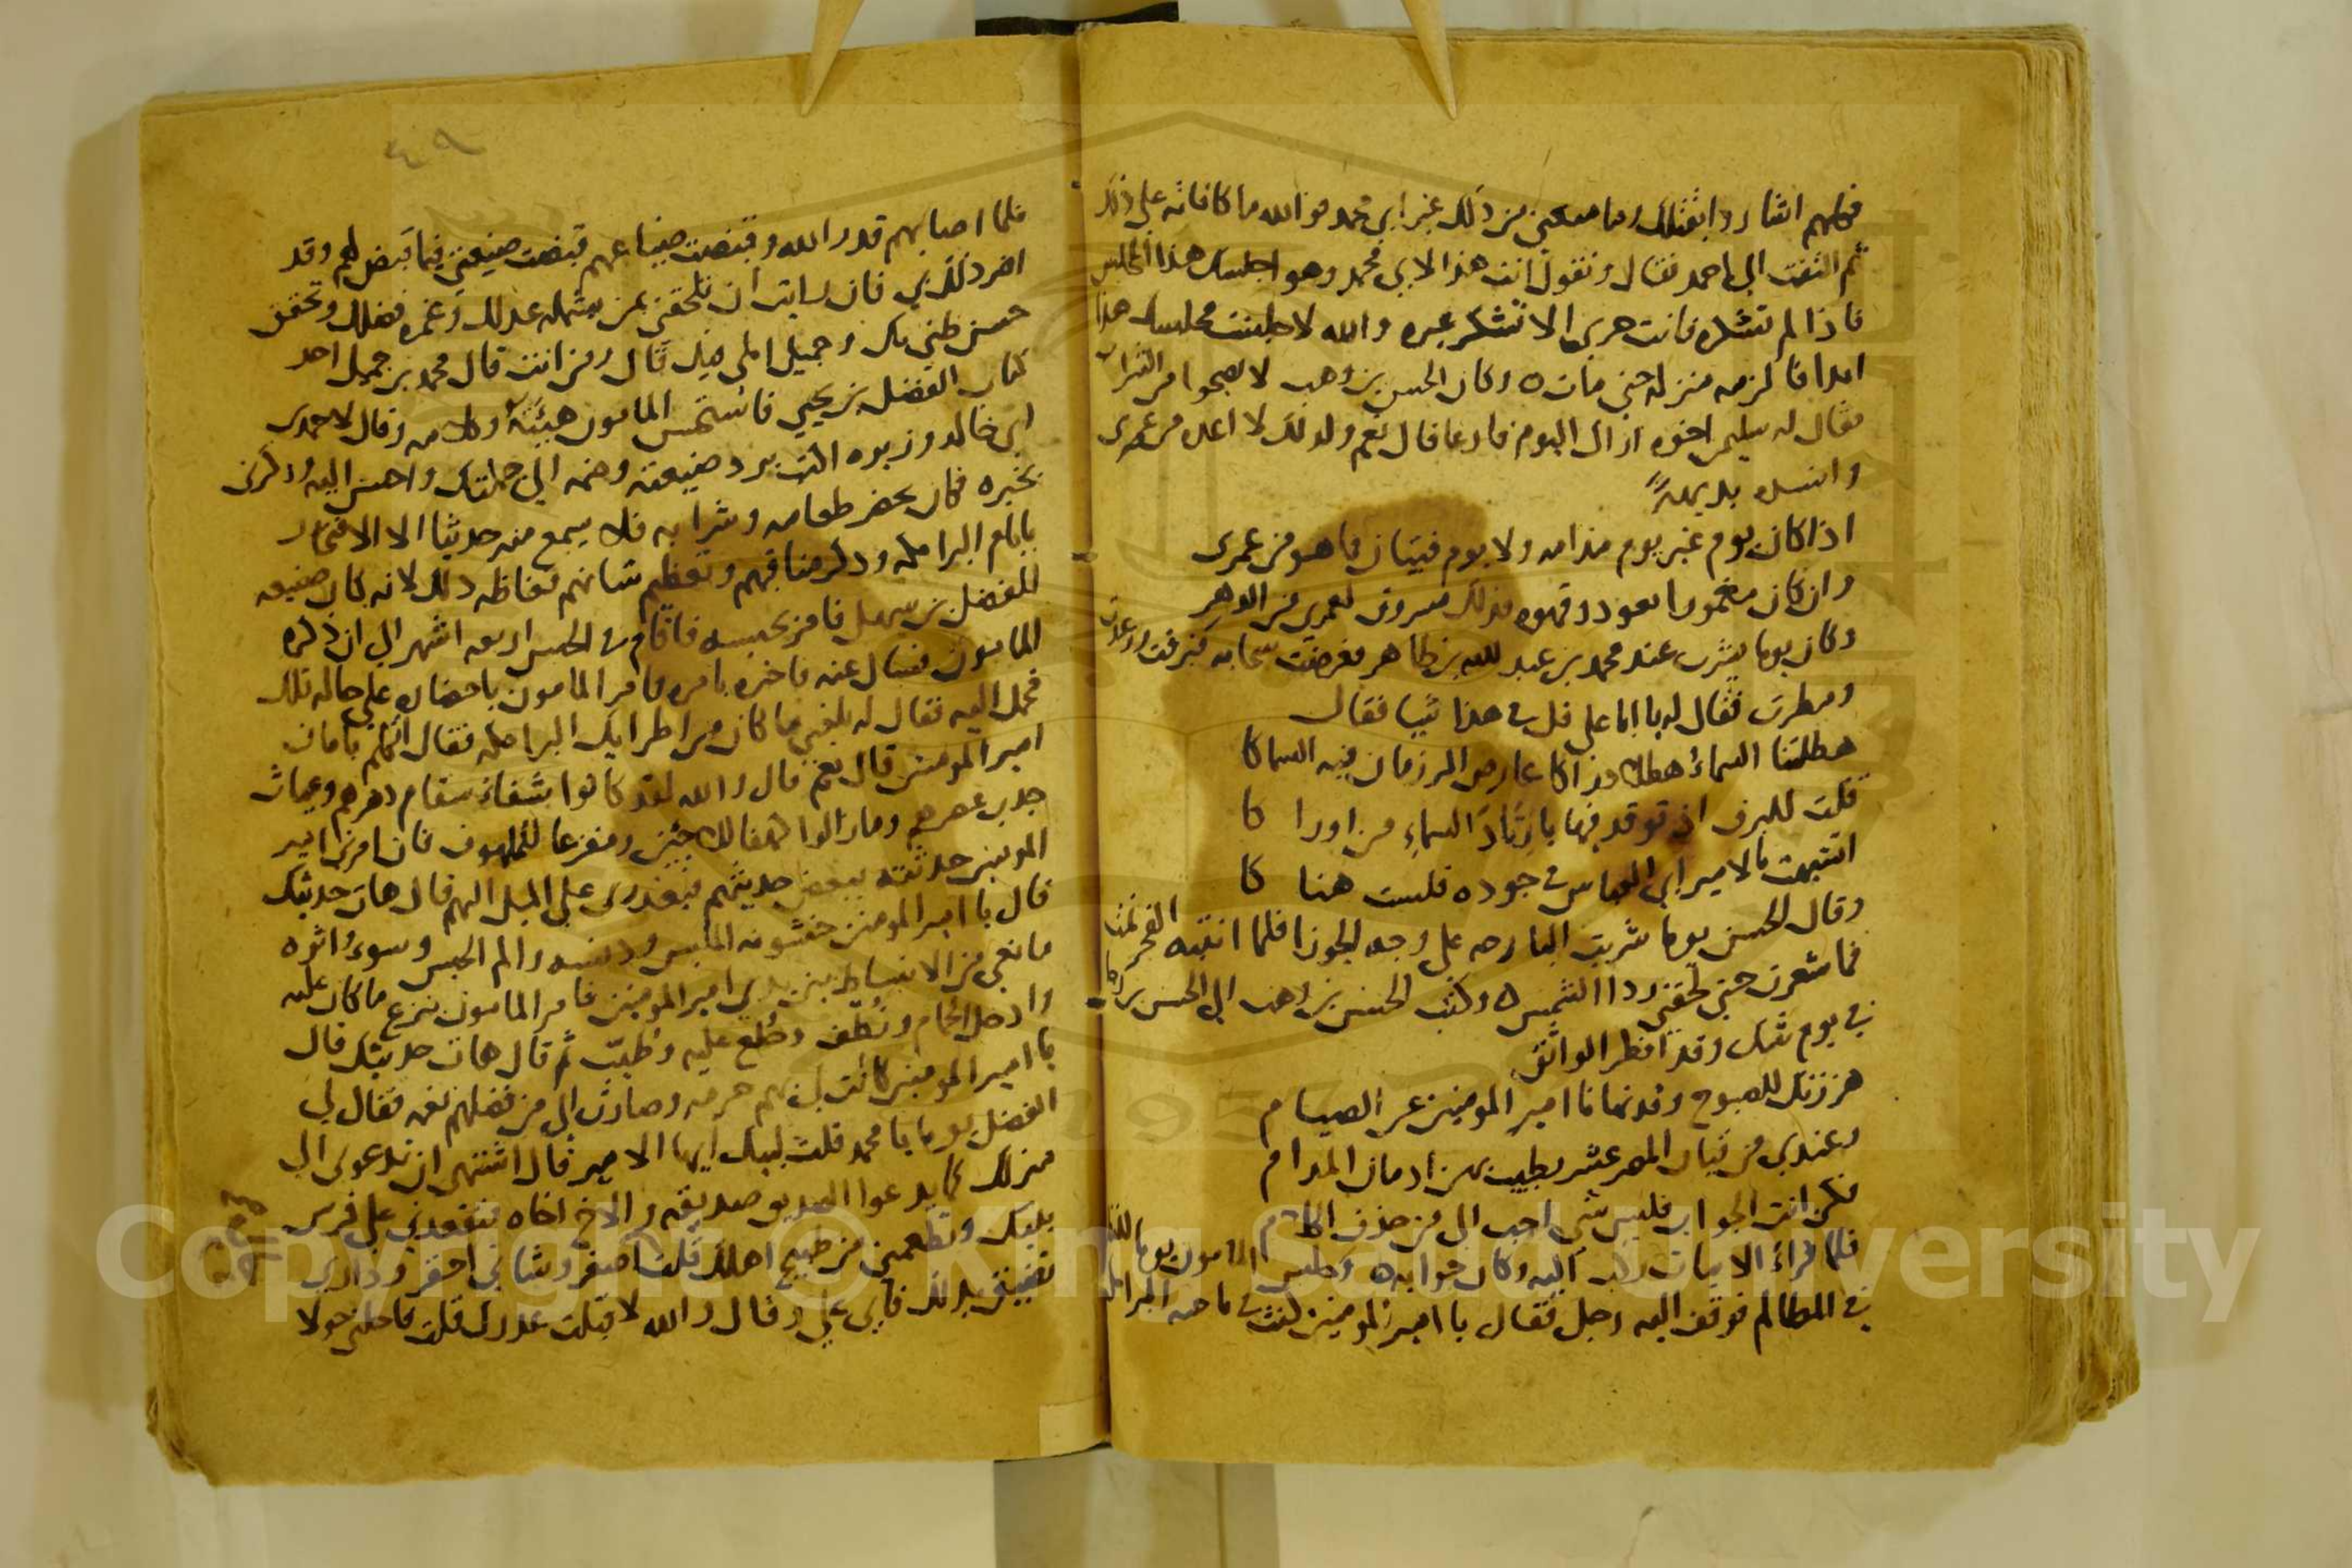 فكلهم اشار دابقتلك وما منعني من ذلك غير ابي محمد فوالله ما كافاته على ذلك
ثم التفت الى احمد فقال وتقول انت هذا لابي محمد وهو اجلسك هذا المجلس
فاذا لم تشكره فانت حري الا تشكر غيره والله لا جلست مجلسك هذا
ابدا فالزمه منزله حتى مات ه وكان الحسن بن وهب لا يصحوا من الشراب
فقال له سليمن اخوه اراك اليوم فارغا قال نعم ولذلك لا اعده من عمري
وانشده بديهة
اذا كان يوم غير يوم مدامه ولا يوم فتيان فما هو من عمري
وان كان معمورا بعود وقهوه فذلك مسروق لعمري من الدهر
وكان يوما يشرب عند محمد بن عبد الله بن طاهر فعرضت سحابه فبرقت ورعدت
ومطرت فقال له يا ابا علي قل في هذا شيا فقال
هطلتنا السماء هطلا دراكا عارض المرزمان فيه السماكا
قلت للبرق اذ توقد فيها يا زناد السماء من اورا كا
اشبهت بالامير ابي العباس في جوده فلست هنا كا
وقال الحسن يوما شربت البارحه على وجه الجوزا فلما انتبه الفجر نمت
فما شعرت حتى لحفني ردا الشمس ه وكتب الحسن بن وهب الى الحسن بن رجا
في يوم شك وقد افطر الواثق
هززتك للصبوح وقد نهانا امير المومنين عن الصيام
وعندي من قيان المصر عشر يطيب بهن ادمان المدام
فكن انت الجواب فليس شي احب الي من حذف الكلام
فلما قراء الابيات ركب اليه وكان جوابه ه وجلس المامون يوما للنظر
في المظالم فوقف اليه رجل فقال يا امير المومنين كنت في ناحيه البرامكه
٤٩
فلما اصابهم قدر الله وقبضت ضياعهم قبضت ضيعتي فيما قبض لهم وقد
اضر ذلك بي فان رايت ان تلحقني بمن يشمله عدلك وغمره فضلك وتحقق
حسن ظني بك وجميل املي فيك قال ومن انت قال محمد بن جميل احد
كتاب الفضل بن يحيي فاستحسن المامون هيئته وكلامه وقال لاحمد بن
ابي خالد وزيره اكتب برد ضيعته وضمه الى جملتك واحسن اليه وذكرني
بخبره فكان يحضر طعامه وشرابه فلا يسمع منه حديثا الا الافتخار
بايام البرامكه وذكر مناقبهم وتعظيم شانهم فغاظه ذلك لانه كان صنيعه
للفضل بن سهل فامر بحبسه فاقام في الحبس اربعه اشهر الى ان ذكره
المامون فسال عنه فاخبره بامره فامر المامون باحضاره على حاله تلك
فحمل اليه فقال له بلغني ما كان من اطرايك البرامكه فقال اتكلم بامان
امير المومنين قال نعم قال والله لقد كانوا شفاء سقام دهرهم وغياث
جدب عصرهم وما زالوا كهفا للاجئين ومفزعا للملهوف فان امرني امير
المومنين حدثته ببعض حديثهم فيعذرني على الميل اليهم قال هات حديثك
قال يا امير المومنين خشونه الملبس ودنسه والم الحبس وسوء اثره
مانعي من الانبساط بين يدي امير المومنين فامر المامون بنزع ما كان عليه
وادخل الحمام ونظف وخلع عليه وطيب ثم قال هات حديثك قال
يا امير المومنين كانت لي بهم حرمه وصارت الي من فضلهم نعمه فقال لي
الفضل يوما يا محمد قلت لبيك ايها الامير قال اشتهي ان تدعوني الى
منزلك كما يدعوا الصديق صديقه والاخ اخاه فتقعدني على فرش
بيتك وتطعمني من طبيخ اهلك قلت اصغر وشاني احقر وداري
تضيق بذلك فابى علي وقال والله لا قبلت عذرك قلت فاجلني حولا
Copyright © King Saud University
1957